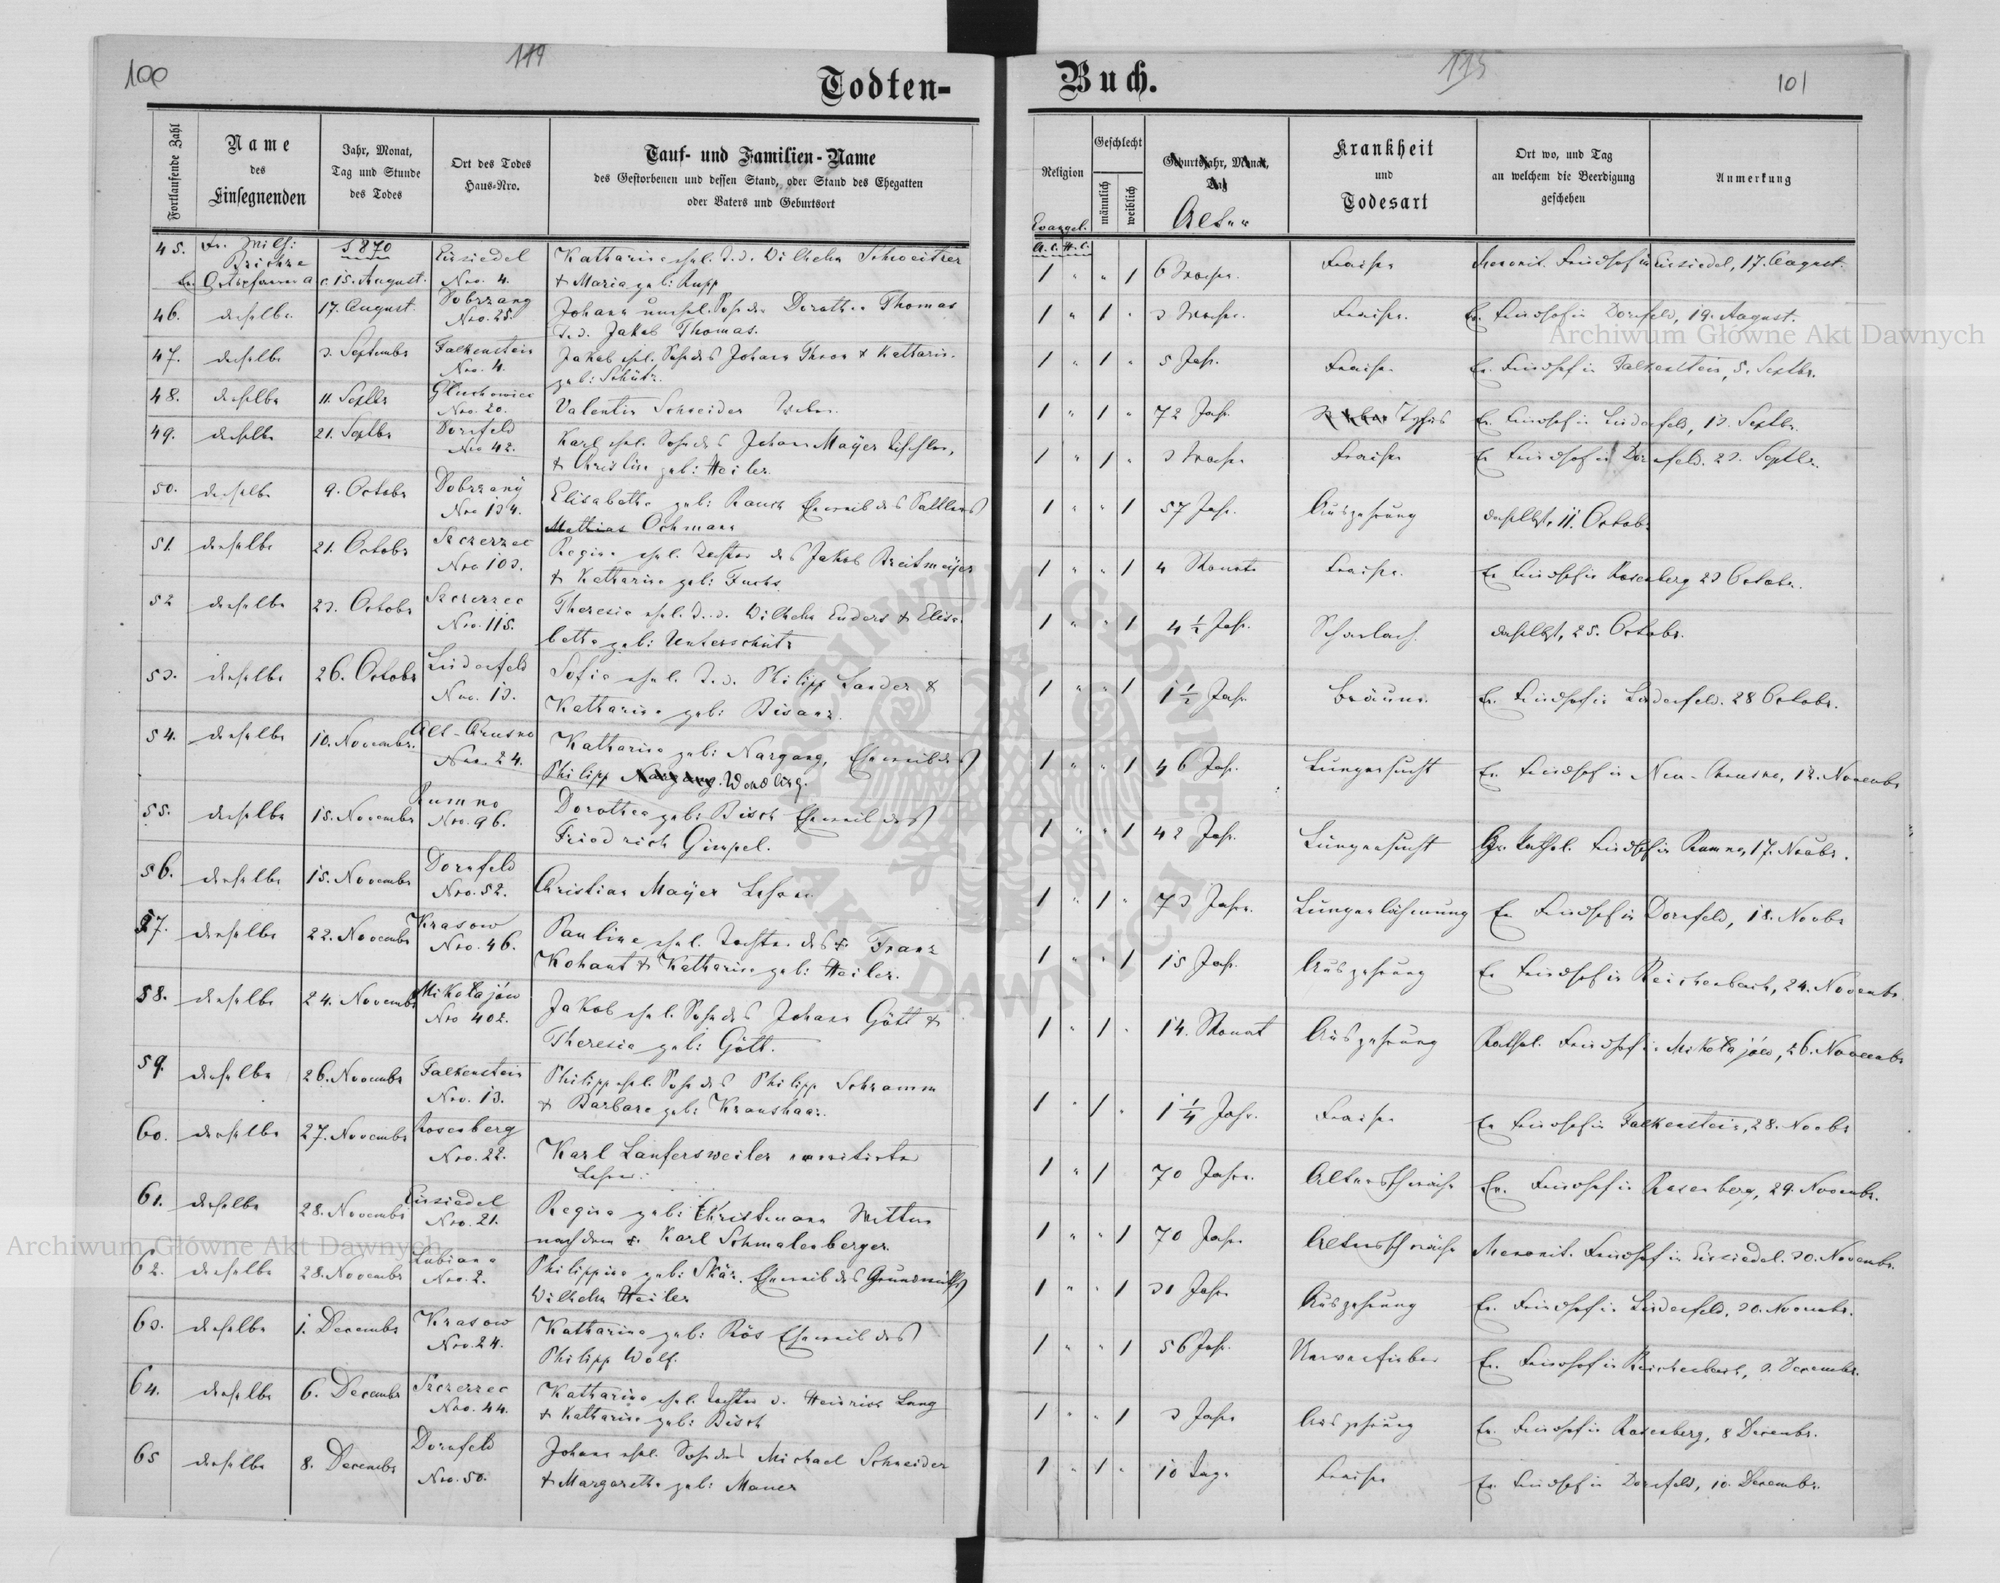 100
119
Todten-
Buch.
115
101
Fortlaufende Zahl
Name
des
Einsegnenden
Jahr, Monat,
Tag und Stunde
des Todes
Ort des Todes
Haus-Nro.
Tauf- und Familien-Name
des Gestorbenen und dessen Stand, oder Stand des Ehegatten
oder Vaters und Geburtsort
Religion
Geschlecht
männlich
weiblich
Geburtsjahr, Monat,
Tag
Alter
Krankheit
und
Todesart
Ort wo, und Tag
an welchem die Beerdigung
geschehen
Anmerkung
Evangel.
A.C. H.C.
1870
45. 15. August. Einsiedel Nro. 4.
Katharina ehel. T. d. Wilhelm Schweitzer
& Maria geb: Rupp
1 " " 1 6 Wochen. Fraisen Menonit. Friedhof in Einsiedel, 17. August.
46. derselbe 17. August. Dobrzany Nro. 25.
Johann unehel. Sohn der Dorothea Thomas
T. d. Jakob Thomas.
1 " 1 " 3 Wochen. Fraisen. Ev. Friedhof in Dornfeld, 19. August.
47. derselbe 3. September Falkenstein Nro. 4.
Jakob ehel. Sohn des Johann & Katharina
geb: Schütz.
1 " 1 " 5 Jahr. Fraisen Ev. Friedhof in Falkenstein, 5. Septbr.
48. derselbe 11. Septbr Nro. 20.
Valentin Schneider Weber.
1 " 1 " 72 Jahr. Typhus Ev. Friedhof in Lindenfeld, 13. Septbr.
49. derselbe 21. Septbr Dornfeld Nro 42.
Karl ehel. Sohn des Johann Mayer Tischler,
& Christine geb: Heiler.
1 " 1 " 3 Wochen Fraisen Ev Friedhof in Dornfeld. 23. Septbr.
50. derselbe 9. Octobr Dobrzany Nro 134.
Elisabetha geb: Rauch Eheweib des Sattlers
Mathias Ochmann
1 " " 1 57 Jahr. Auszehrung daselbst, 11. Octobr
51. derselbe 21. Octobr Szczerzec Nro 103.
Regina ehel. Tochter des Jakob Breitmayer
& Katharina geb: Fuchs
1 " " 1 4 Monate Fraisen. Ev Friedhof in Rosenberg 23 Octobr.
52 derselbe 23. Octobr Szczerzec Nro. 115.
Theresia ehel. T. d. Wilhelm Enders & Elisa-
betha geb: Unterschütz
1 " " 1 4 ½ Jahr. Scharlach. daselbst, 25. Octobr.
53. derselbe 26. Octobr Lindenfeld Nro. 13.
Sofia ehel. T. d. Philipp Lander &
Katharina geb: Bisanz.
1 " " 1 1 ½ Jahr Bräune. Ev. Friedhof in Lindenfeld. 28 Octobr.
54. derselbe 10. Novembr. Alt-Chrusno Nro. 24.
Katharina geb: Nargang, Eheweib des
Philipp Nargang. Wendling.
1 " " 1 46 Jahr. Lungensucht Ev. Friedhof in Neu-Chrusno, 12. Novembr
55. derselbe 15. Novembr Rumno Nro. 96.
Dorothea geb: Bisch Eheweib des
Friedrich Gimpel.
1 " " 1 42 Jahr. Lungensucht Gr. Kathol. Friedhof in Rumno, 17. Novbr.
56. derselbe 15. Novembr Dornfeld Nro. 52.
Christian Mayer Lehrer
1 " 1 " 73 Jahre. Lungenlähmung Ev Friedhof in Dornfeld, 18. Novbr
57. derselbe 22. Novembr Krasow Nro. 46.
Pauline ehel. Tochter des † Franz
Kohaut & Katharina geb: Heiler.
1 " " 1 15 Jahr. Auszehrung Ev Friedhof in Reichenbach, 24. Novembr.
58. derselbe 24. Novembr Mikołajów Nro 402.
Jakob ehel. Sohn des Johann Gött &
Theresia geb: Gött.
1 " 1 " 14. Monat Auszehrung Kathol. Friedhof in Mikołajów, 26. Novembr
59. derselbe 26. Novembr Falkenstein Nro. 13.
Philipp ehel. Sohn des Philipp Schramm
& Barbara geb: Kraushaar.
1 " 1 " 1 ¼ Jahr. Fraisen Ev Friedhof in Falkenstein, 28. Novbr
60. derselbe 27. Novembr Rosenberg Nro. 22.
Karl Laufersweiler
Lehrer.
1 " 1 70 Jahre. Altersschwäche Ev. Friedhof in Rosenberg, 29. Novembr.
61. derselbe 28. Novembr Einsiedel Nro. 21.
Regina geb: Christmann Wittwe
nach dem † Karl Schmalenberger.
1 " " 1 70 Jahre Altersschwäche Menonit. Friedhof in Einsiedel. 30. Novembr.
62. derselbe 28. Novembr Lubiana Nro. 2.
Philippine geb: Eheweib des Grundwirths
Wilhelm Heiler
1 " " 1 31 Jahre Auszehrung Ev. Friedhof in Lindenfeld, 30. Novembr.
63. derselbe 1. Decembr Krasow Nro. 24.
Katharina geb: Rös Eheweib des
Philipp Wolf.
1 " " 1 56 Jahr. Nervenfieber Ev. Friedhof in Reichenbach, 3. Decembr.
64. derselbe 6. Decembr Szczerzec Nro. 44.
Katharina ehel. Tochter d. Heinrich Lang
& Katharina geb: Bisch
1 " " 1 3 Jahre Auszehrung Ev. Friedhof in Rosenberg, 8 Decembr.
65 derselbe 8. Decembr Dornfeld Nro. 50.
Johann ehel. Sohn des Michael Schneider
& Margaretha geb: Mauer
1 " 1 " 10 Tage Fraisen Ev. Friedhof in Dornfeld, 10. Decembr.
Archiwum Główne Akt Dawnych
Archiwum Główne Akt Dawnych
ARCHIWUM GŁÓWNE AKT DAWNYCH